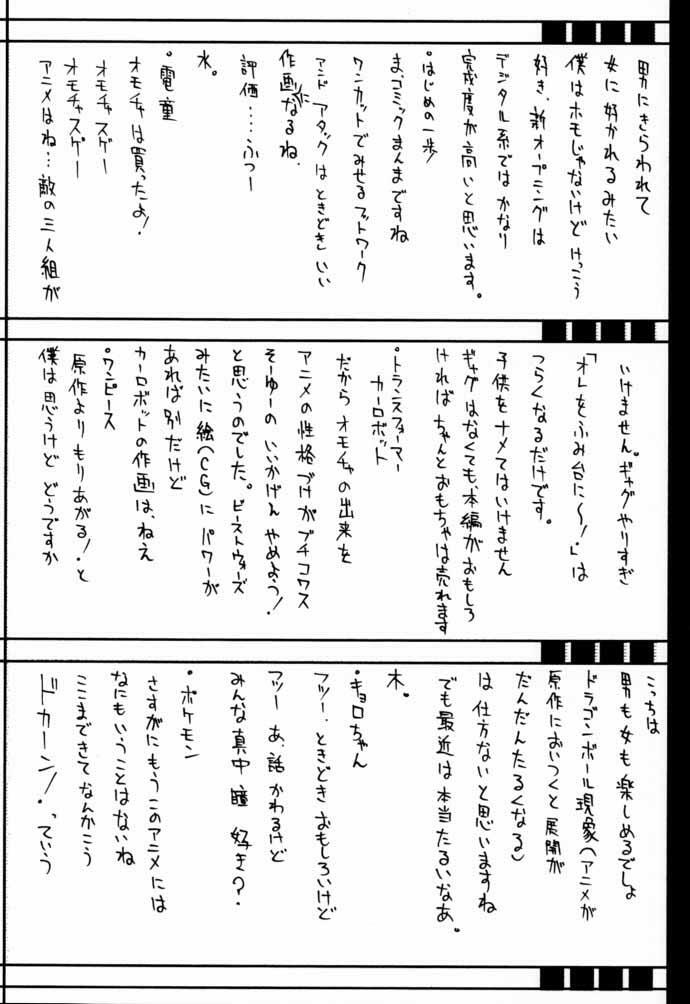 男にきらわれて
女に好かれるみたい
僕はホモじゃないけど けっこう
好き、新オープニングは
デジタル系ではかなり
完成度が高いと思います。
・はじめの一歩
ま、コミックまんまですね
ワンカットでみせるフットワーク
アンド アタックはときどきいい
作画になるね、
評価……ふつー
水。
・電童
オモチャは買ったよ!
オモチャスゲー
オモチャスゲー
アニメはね…敵の三人組が
いけません。ギャグやりすぎ
「オレをふみ台に〜!」は
つらくなるだけです。
子供をナメてはいけません
ギャグはなくても、本編がおもしろ
ければちゃんとおもちゃは売れます
・トランスフォーマー
カーロボット
だから オモチャの出来を
アニメの性格づけがブチコワス
そーゆーの いいかげん やめよう!
と思うのでした。ビーストウォーズ
みたいに絵(CG)に パワーが
あれば別だけど
カーロボットの作画は、ねえ
・ワンピース
原作よりもりあがる!と
僕は思うけど どうですか
こっちは
男も女も楽しめるでしょ
ドラゴンボール現象(アニメが
原作においつくと展開が
だんだんたるくなる)
は 仕方ないと思いますね
でも最近は本当たるいなあ。
木。
・キョロちゃん
フツー、ときどきおもしろいけど
フツー あ、話かわるけど
みんな真中 瞳 好き?
・ポケモン
さすがにもうこのアニメには
なにもいうことはないね
ここまできてなんかこう
ドカーン!っていう